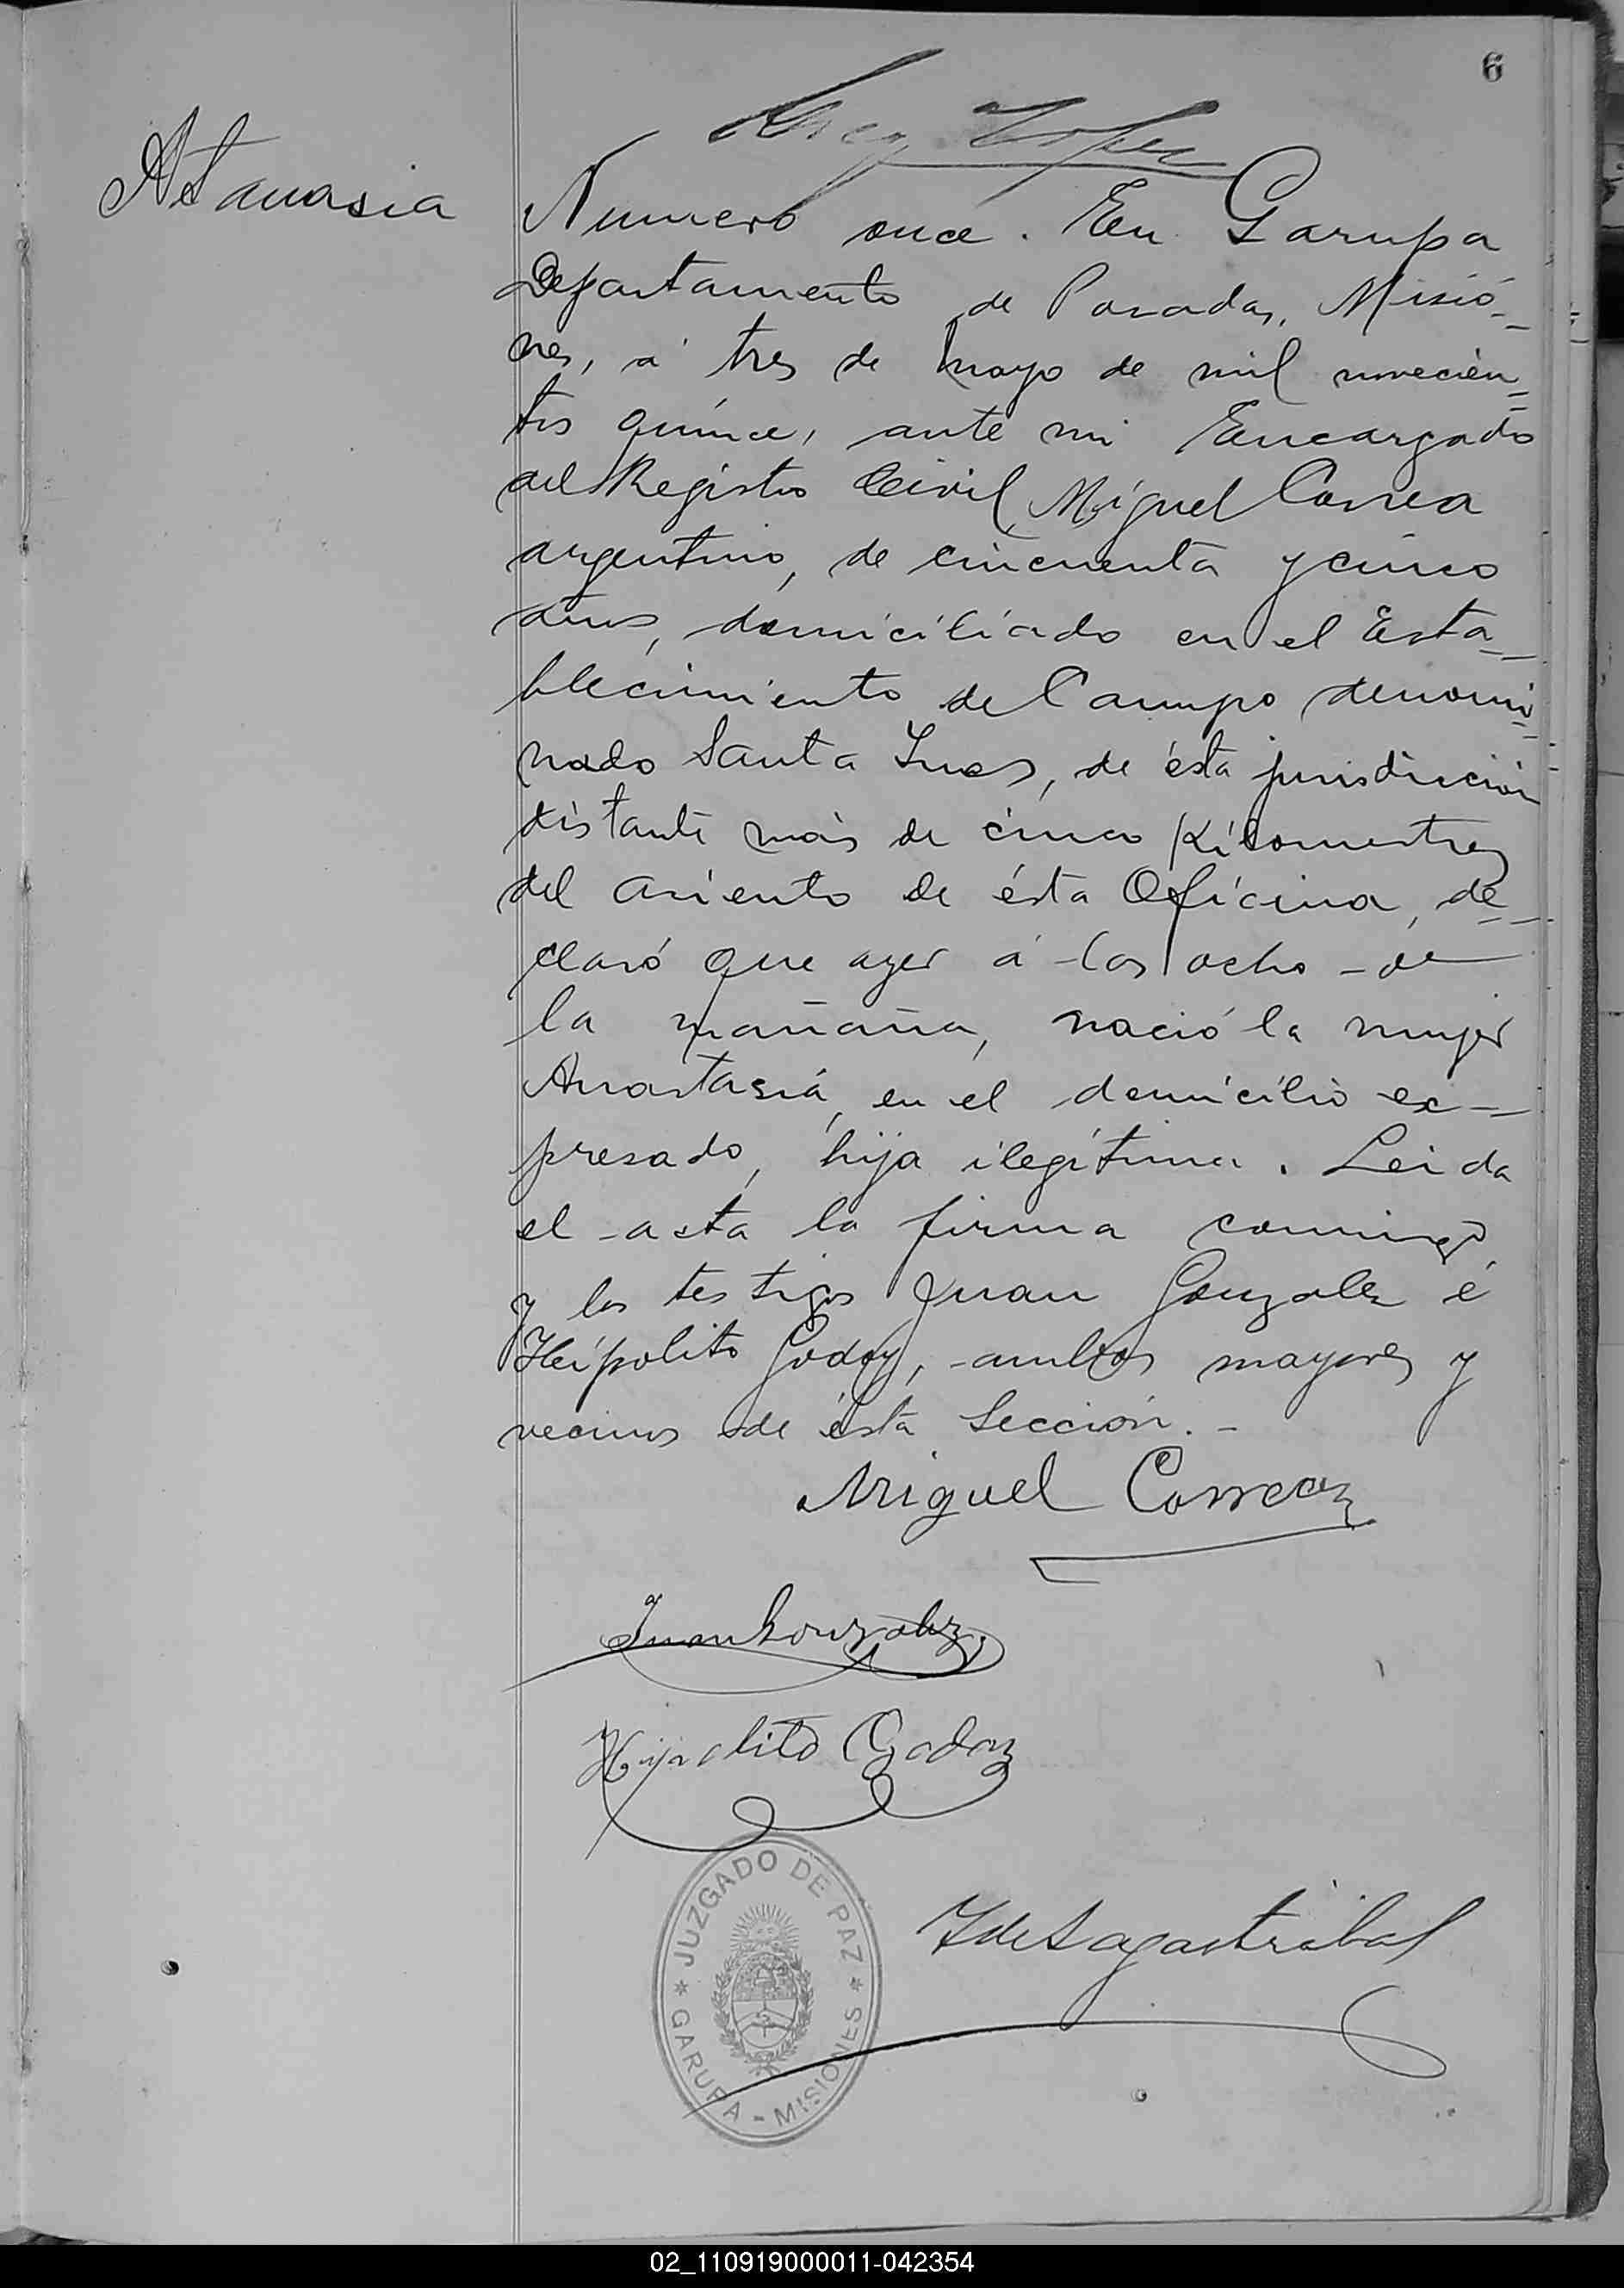 6
Lopez
Atanasia
Numero once. En Garupa
Departamento de Posadas, Misió-
nes, á tres de mayo de mil novecien-
tos quince, ante mi Encargado
del Registro Civil, Miguel Correa
argentino, de cincuenta y cinco
años, domiciliado en el Esta-
blecimiento de Campo denomi-
nado Santa Ines, de ésta jurisdicción
distante más de cinco Kilometres
del asiento de ésta Oficina, de-
claró que ayer á las ocho de
la mañana, nació la mujer
Anastasia, en el domicilio ex-
presado, hija ilegítima. Leida
el acta la firma conmigo
y los testigos Juan Gonzalez é
Heipolito Godoy, ambos mayores y
vecinos de ésta Sección.-
Miguel Correa
Juan Gonzalez
Hipolito Godoy
JUZGADO DE PAZ
GARUPA - MISIONES
02_110919000011-042354